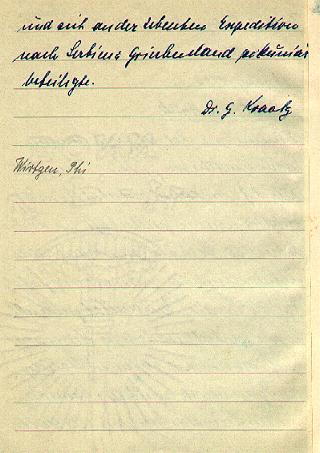 und mit an der lebenten Expedition
nach Serbien & Griechenland pekuniär
beteiligte.
Dr. G. Kraatz
Wirtgen, Phi